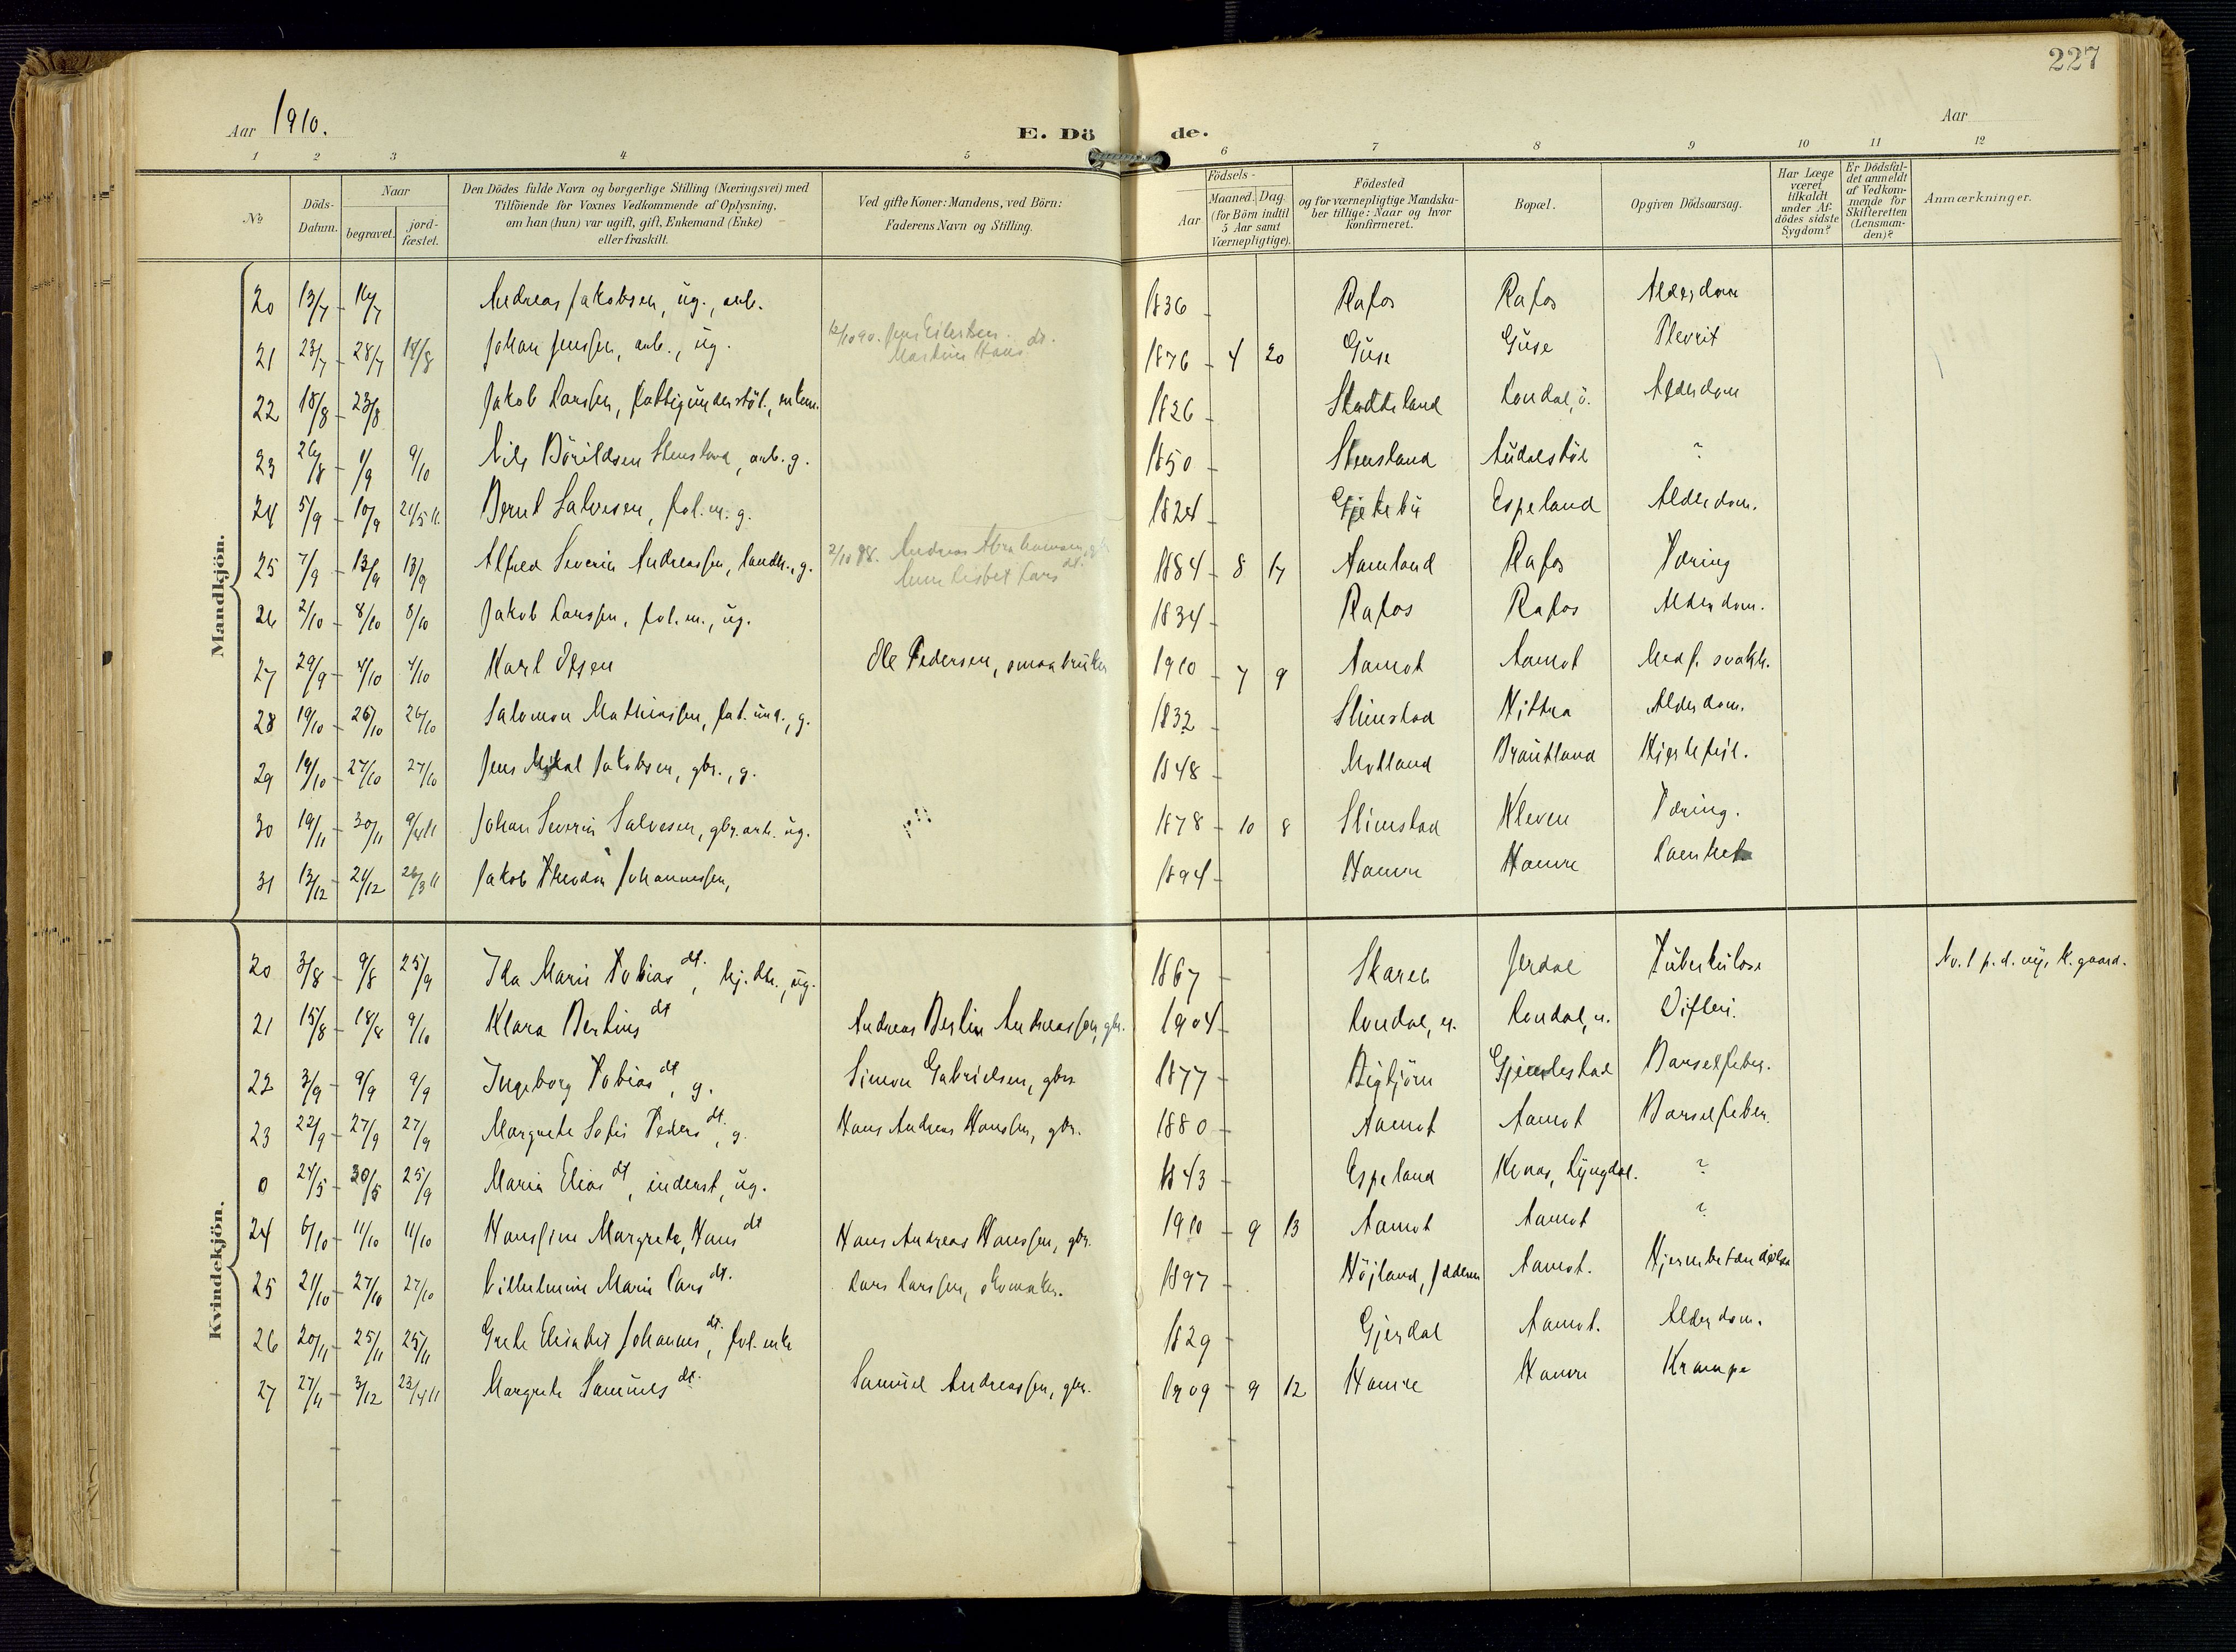 227
Aar 1910.
E. Dö de.
Aar
1 2 3 4 5 6 7 8 9 10 11 12
№
Döds-Datum.
Naar
begravet.
jord-fæstet.
Den Dödes fulde Navn og borgerlige Stilling (Næringsvei) med
Tilföiende for Voxnes Vedkommende af Oplysning,
om han (hun) var ugift, gift, Enkemand (Enke)
eller fraskilt.
Ved gifte Koner: Mandens, ved Börn:
Faderens Navn og Stilling.
Födsels-
Aar
Maaned. Dag.
(for Börn indtil
5 Aar samt
Værnepligtige).
Födested
og for værnepligtige Mandska-
ber tillige: Naar og hvor
konfirmeret.
Bopæl.
Opgiven Dödsaarsag.
Har Læge
været
tilkaldt
under Af-
dödes sidste
Sygdom?
Er Dödsfal-
det anmeldt
af Vedkom-
mende for
Skifteretten
(Lensman-
den)?
Anmærkninger.
Mandkjön.
20 13/7 - 16/7 Andreas Jakobsen, ug., arb. 1836 - Rafos Rafos Alderdom
21 23/7 - 28/7 14/8 Johan Jenssen, arb., ug. 12/10 90. Jens Eilertsen. Martine Hans dt. 1876 - 4 20 Guse Guse Plevrit
22 18/8 - 23/8 Jakob Larssen, fattigunderstöt., enkem. 1826 - Stadteland Londal, ö. Alderdom
23 26/8 - 1/9 9/10 Nils Bövildsen Stensland, arb. g. 1850 - Stensland Audalstöl ?
24 5/9 - 10/9 21/5 11. Bernt Salvesen, fol.m. g. 1824 - Gjekebü Espeland Alderdom.
25 7/9 - 13/9 13/9 Alfred Severin Andreassen, landh., g. 2/10 98. Andreas Abrahamsen, gbr. Anne Lisbet Lars dt. 1884 - 8 17 Aamland Rafos Tæring
26 2/10 - 8/10 8/10 Jakob Larssen, fol.m., ug. 1834 - Rafos Rafos Alderdom.
27 29/9 - 4/10 4/10 Karl Olsen Ole Pedersen, smaabruker 1910 - 7 9 Aamot Aamot Medf. svakh.
28 19/10 - 26/10 26/10 Salomon Mathiassen, fat. und., g. 1832 - Slimstad Nittra Alderdom.
29 19/10 - 27/10 27/10 Jens Mikal Jakobsen, gbr., g. 1848 - Motland Brautland Hjertefeil.
30 19/11 - 30/11 9/4 11 Johan Severin Salvesen, gbr. arb. ug. 1878 - 10 8 Slimstad Kleven Tæring.
31 13/12 - 21/12 26/3 11 Jakob Theodor Johannessen, 1894 - Haavre Haavre
Kvindekjön.
20 3/8 - 9/8 25/9 Ida Marie Tobias dt., hj. dtr., ug. 1867 - Skareb Jerdal Tuberkulose No. 1 p. d. ny. k.gaard.
21 15/8 - 18/8 9/10 Klara Bertins dt Andreas Bertin Andreassen, gbr. 1904 - Londal, n. Londal, n. Difteri.
22 3/9 - 9/9 9/9 Ingeborg Tobias dt, g. Simon Gabrielsen, gbr. 1877 - Bigbjörn Gjemlestad Barselfeber.
23 22/9 - 27/9 27/9 Margrete Sofie Peders dt., g. Hans Andreas Hanssen, gbr. 1880 - Aamot Aamot Barselfeber.
0 24/5 - 30/5 25/9 Maria Elias dt, inderst, ug. 1843 - Espeland Kvaas, Lyngdal. ?
24 6/10 - 11/10 11/10 Hanssine Margrete, Hans dt Hans Andreas Hanssen, gbr. 1910 - 9 13 Aamot Aamot ?
25 21/10 - 27/10 27/10 Vilhelmine Marie Lars dt. Lars Larssen, skomaker. 1897 - Höjland, Jæderen Aamot. Hjernebetændelse
26 20/11 - 25/11 25/11 Grete Elisabet Johannes dt., fol. enke 1829 - Gjerdal Aamot. Alderdom.
27 27/11 - 3/12 23/4 11 Margrete Samuels dt. Samuel Andreassen, gbr. 1909 - 9 12 Haavre Haavre Krampe